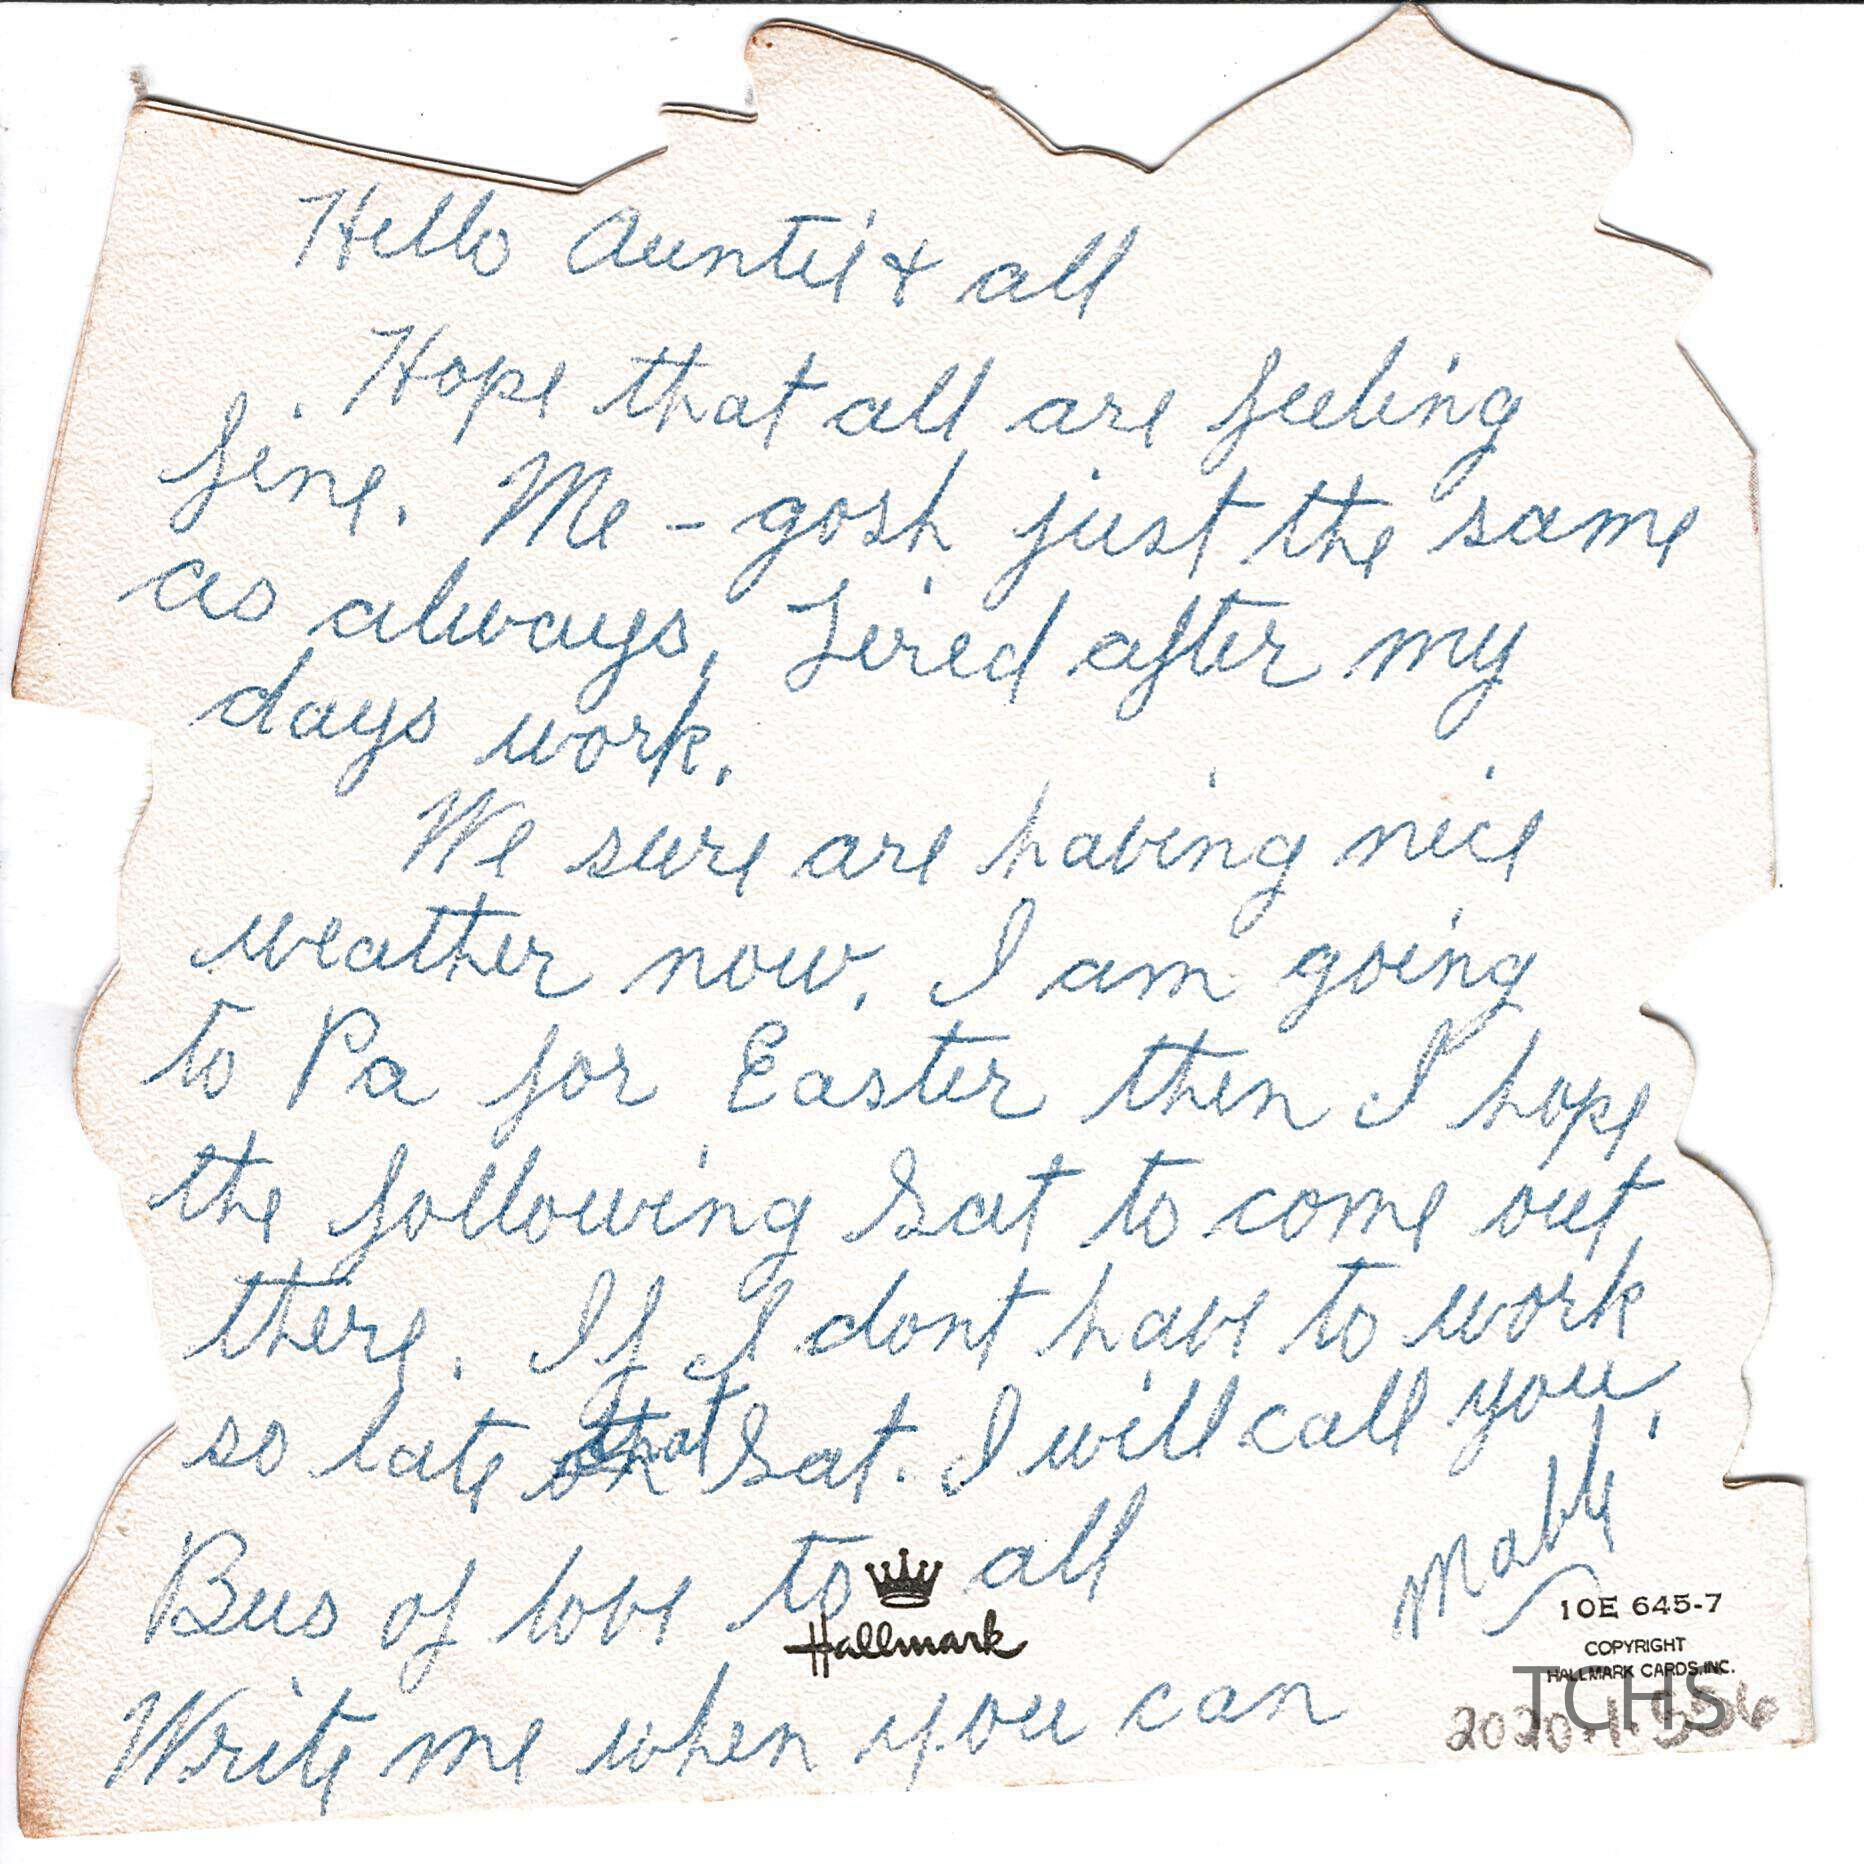 Hello Auntie & all
Hope that all are feeling
fine. Me - gosh just the same
as always, Tired after my
days work.
We sure are having nice
weather now. I am going
to Pa for Easter then I hope
the following Sat to come out
there. If I dont have to work
so late that Sat. I will call you.
Bus of love to all
Mable
Hallmark
Write me when you can
10E 645-7
COPYRIGHT
HALLMARK CARDS, INC.
TCHS